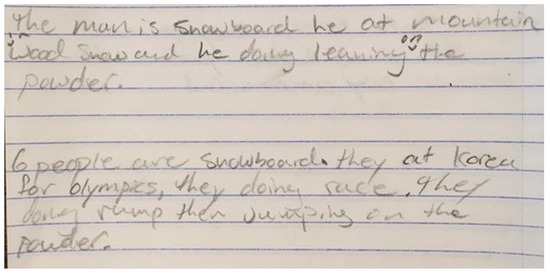 The man is snowboard he at mountain
in wood snow and he doing leaning on the
powder.
6 people are snowboard. they at Korea
for olympics, they doing race. they
doing rump then Jumping on the
powder.